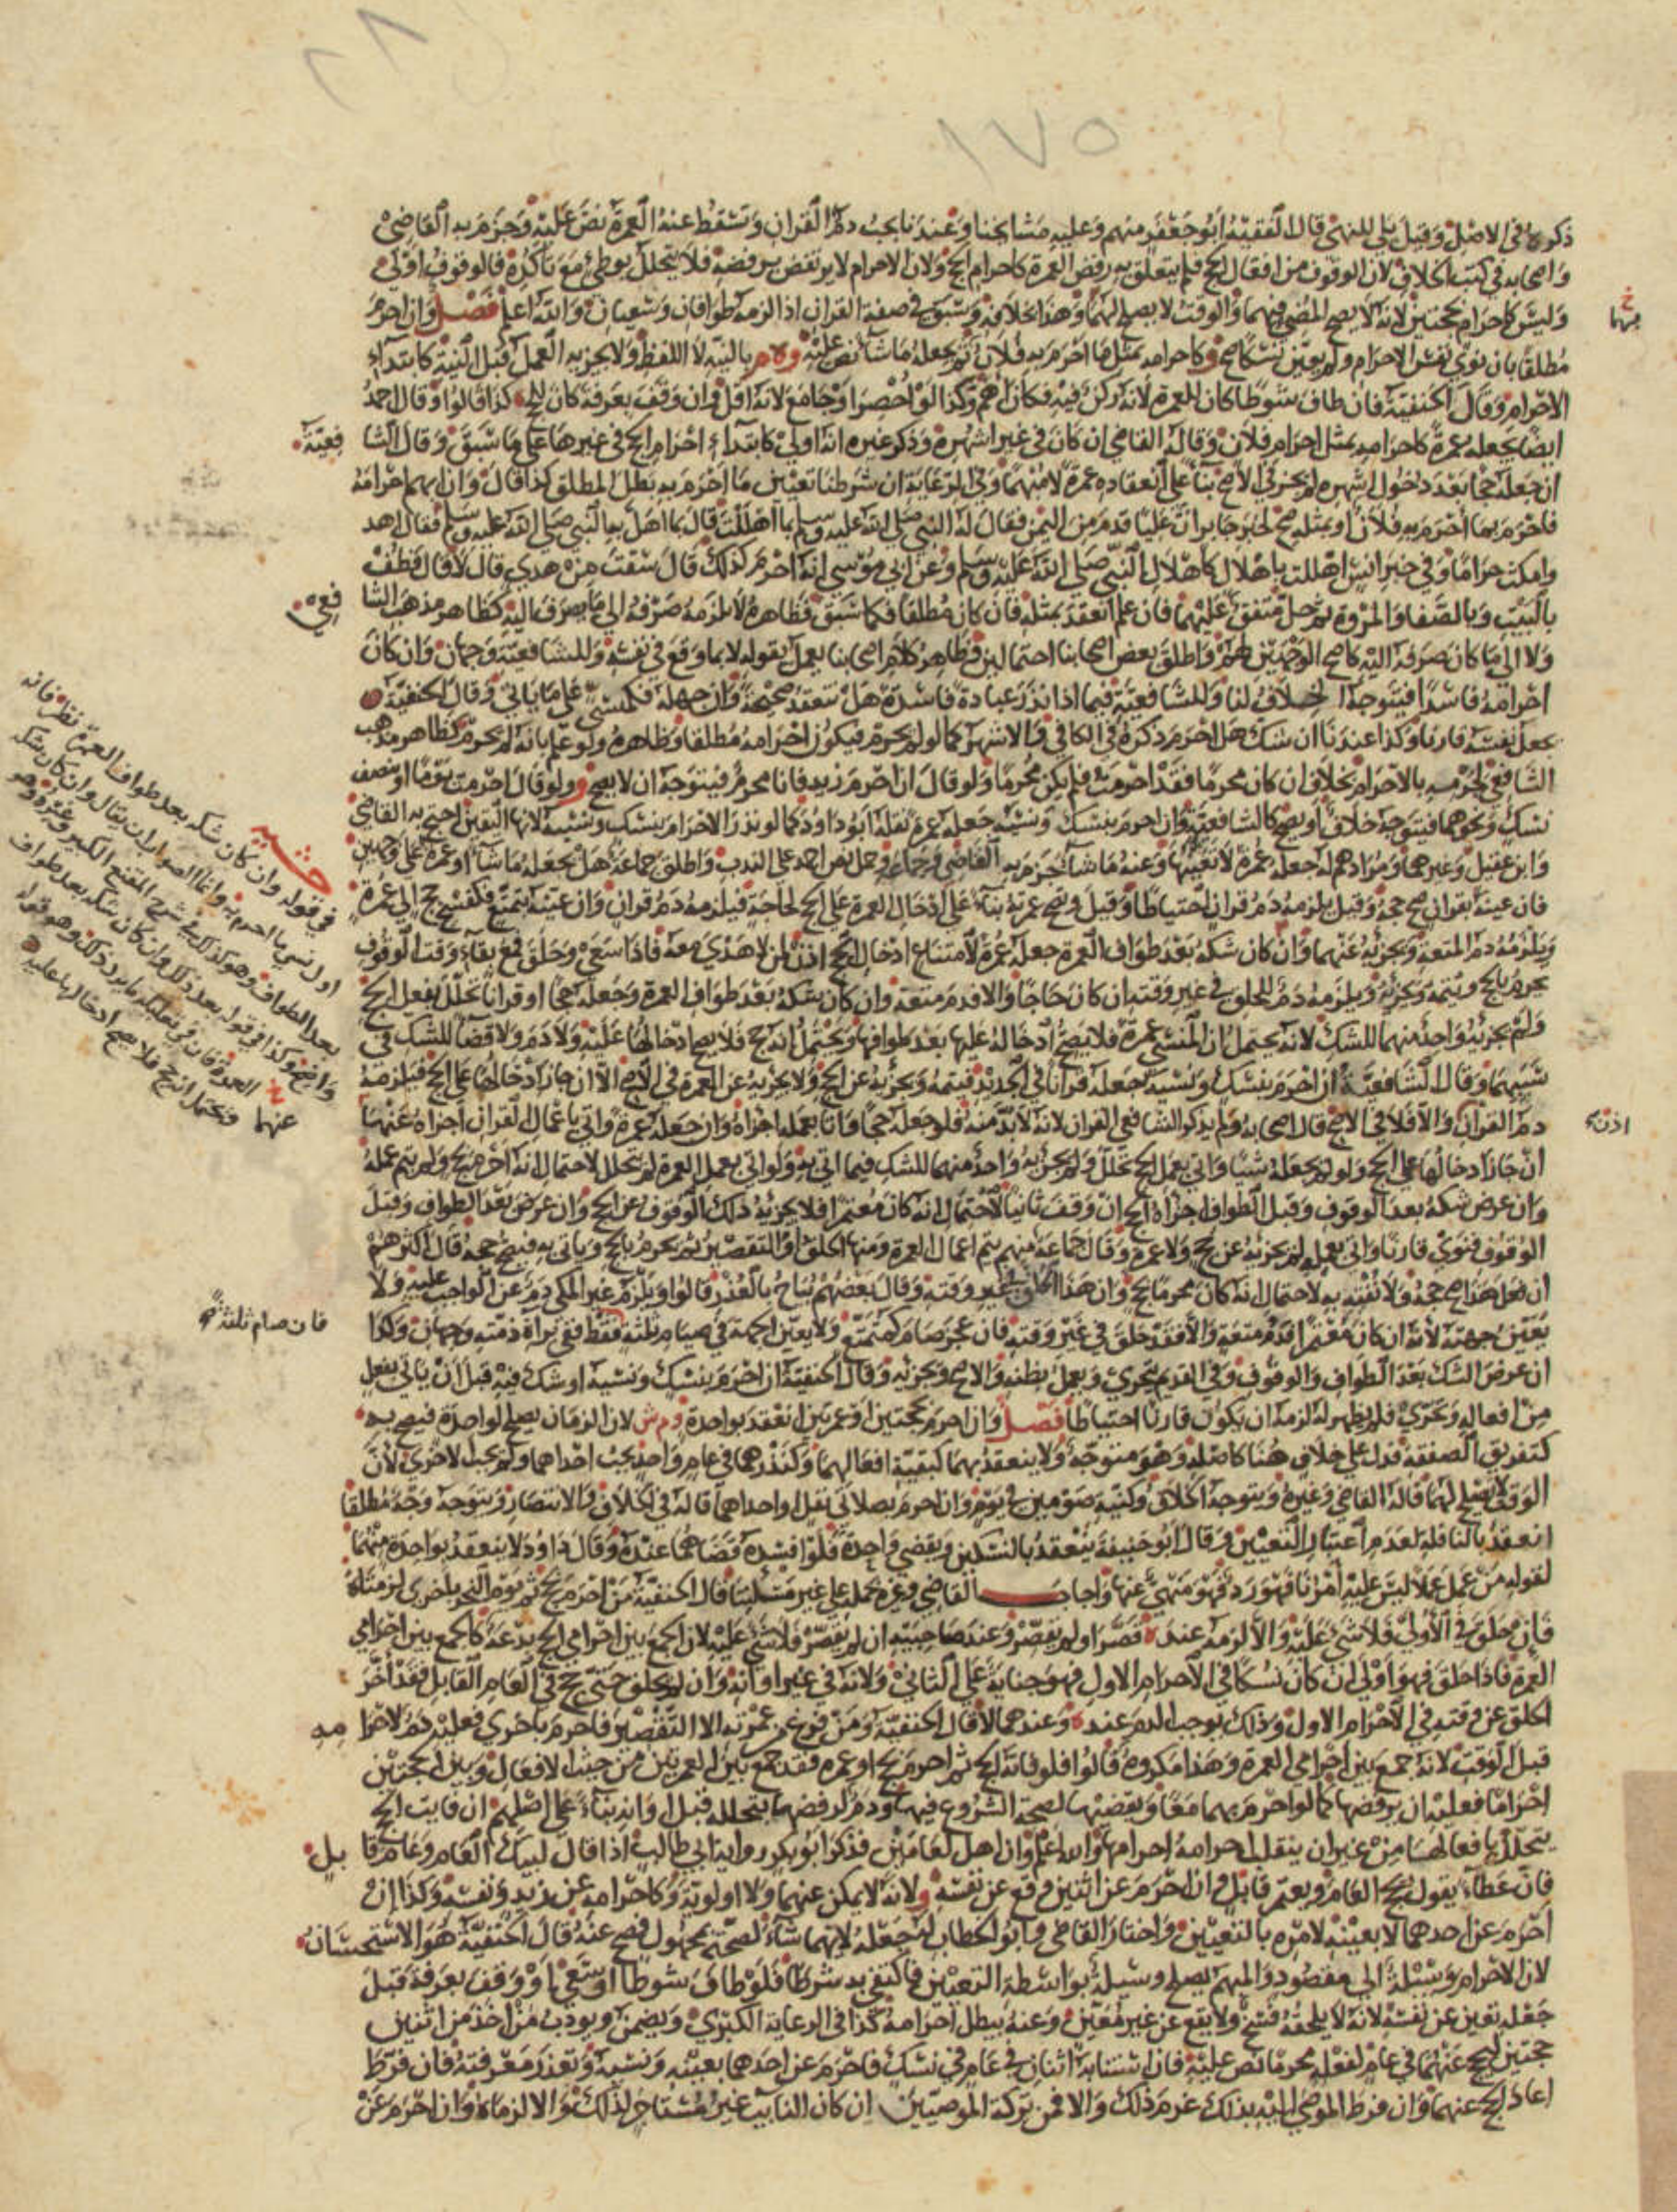 ١٧٥
ذكروه في الاصل وقيل بلى للنهي قال الفقيه ابو جعفر منهم وعليه مشايخنا وعندنا يجب دم القران وتسقط عنه العمرة نص عليه وجزم به القاضي
واصحابه في كتب الخلاف لان الوقوف من افعال الحج فلم يتعلق به رفض العمرة كاحرام الحج ولان الاحرام لا يرتفض برفضه فلا يتحلل بوطئ مع تأكده فالوقوف اولى
وليس كاحرام بحجتين لانه لا يصح المضي فيهما والوقت لا يصلح لهما وهذا بخلافه وسبق في صفة القران اذا لزمه طوافان وسعيان والله اعلم فصل وان احرم
مطلقا بان نوى نفس الاحرام ولم يعين نسكا صح وكاحرامه بمثل ما احرم به فلان ثم يجعله ما شاء نص عليه و م بالنية لا اللفظ ولا يجزيه العمل قبل النية كابتداء
الاحرام وقال الحنفية فان طاف شوطا كان للعمرة لانه ركن فيه فكان اهم وكذا لو احصر او جامع لانه اقل وان وقف بعرفة كان للحج كذا قالوا وقال احمد
ايضا يجعله عمرة كاحرامه بمثل احرام فلان وقاله القاضي ان كان في غير اشهره وذكر غيره انه اولى كابتداء احرام الحج في غيرها على ما سبق وقال الشا فعية
ان جعله حجا بعد دخول اشهره لم يجز في الاصح بناء على انعقاده عمرة لا منهما وفي الرعاية ان شرطنا تعيين ما احرم به بطل المطلق كذا قال وان ابهم احرامه
فاحرم بما احرم به فلان او بمثله صح لخبر جابر ان عليا قدم من اليمن فقال له النبي صلى الله عليه وسلم بما اهللت قال بما اهل به النبي صلى الله عليه وسلم فقال اهد
وامكث حراما وفي خبر انس اهللت باهلال كاهلال النبي صلى الله عليه وسلم وعن ابي موسى انه احرم كذلك قال سقت من هدي قال لا قال فطف
بالبيت وبالصفا والمروة ثم حل متفق عليهما فان علم انعقد بمثله فان كان مطلقا فكما سبق فظاهره لا يلزمه صرفه الى ما يصرف اليه كظاهر مذهب الشا فعي
ولا الى ما كان صرفه اليه كاصح الوجهين لهم واطلق بعض اصحابنا احتمالين وظاهر كلام اصحابنا يعمل بقوله لا بما وقع في نفسه وللشافعية وجهان وان كان
احرامه فاسدا فيتوجه الخلاف لنا وللشافعية فيما اذا نذر عبادة فاسدة هل تنعقد صحيحة وان جهله فكمنسي على ما ياتي وقال الحنفية
يجعل نفسه قارنا وكذا عندنا ان شك هل احرم ذكره في الكافي والاشهر كما لو لم يحرم فيكون احرامه مطلقا وظاهره ولو علم بانه لم يحرم كظاهر مذهب
الشافعي لجزمه بالاحرام بخلاف ان كان محرما فقد احرمت فلم يكن محرما ولو قال ان احرم زيد فانا محرم فيتوجه ان لا يصح و ولو قال احرمت يوما او بنصف
نسك ونحوهما فيتوجه خلاف او يصح كالشافعية وان احرم بنسك ونسيه جعله عمرة نقله ابو داود كما لو نذر الاحرام بنسك ونسيه لانها اليقين احتج به القاضي
وابن عقيل وغيرهما ومرادهم له جعله عمرة لا تعينها وعنه ما شاء جزم به القاضي وجماعة وحمل نص احمد على الندب واطلق جماعة هل يجعله ما شاء او عمرة على وجهين
فان عينه بقران صح حجه وقيل يلزمه دم قران احتياطا وقيل وتصح عمرته بناء على ادخال العمرة على الحج لحاجة فيلزمه دم قران وان عينه بتمتع فكفسخ حج الى عمرة
ويلزمه دم المتعة ويجزئه عنهما وان كان شكه بعد طواف العمرة جعله عمرة لامتناع ادخال الحج اذن لمن لا هدي معه فاذا سعى وحلق فمع بقاء وقت الوقوف
يحرم بالحج ويتمه ويجزئه ويلزمه دم للحلق في غير وقته ان كان حاجا والا فدم متعة وان كان شكه بعد طواف العمرة وجعله حجا او قرانا تحلل بفعل الحج
ولم يجزئه واحد منهما للشك لانه يحتمل ان المنسي عمرة فلا يصح ادخاله عليها بعد طوافها ويحتمل انه حج فلا يصح ادخالها عليه ولا دم ولا قضاء للشك في
سببهما وقال الشافعية ان احرم بنسك ونسيه جعله قرانا في الجديد فيتمه ويجزيه عن الحج ولا يجزيه عن العمرة في الاصح الا ان جاز ادخالها على الحج فيلزمه
دم القران والا فلا في الاصح قال اصحابه ولم يذكر الشافعي القران لانه لا بد منه فلو جعله حجا واتى بعمله اجزاه وان جعله عمرة واتى باعمال القران اجزاه عنهما
ان جاز ادخالها على الحج ولو لم يجعله شيئا واتى بعمل الحج تحلل ولم يجزئه واحد منهما للشك فيما اتى به ولو اتى بعمل العمرة لم يتحلل لاحتمال انه احرم بحج ولم يتم عمله
وان عرض شكه بعد الوقوف وقبل الطواف اجزاه الحج ان وقف ثانيا لاحتمال انه كان معتمرا فلا يجزيه ذلك الوقوف عن الحج وان عرض بعد الطواف وقبل
الوقوف فنوى قارنا واتى بعمله لم يجزيه عن حج ولا عمرة وقال جماعة منهم يتم اعمال العمرة ومنها الحلق او التقصير ثم يحرم بالحج وياتي به فيصح حجه قال اكثرهم
ان فعل هذا صح حجه ولا نفتيه به لاحتمال انه كان محرما بحج وان هذا الحلق في غير وقته وقال بعضهم يباح بالعذر قالوا ويلزم غير المكي دم عن الواجب عليه ولا
يعين جهته لانه ان كان معتمرا فدم متعة والا فقد حلق في غير وقته فان عجز صام كمتمتع ولا يعين الجهة في صيام ثلثة فقط ففي براة ذمته وجهان وكذا
ان عرض الشك بعد الطواف والوقوف وفي القديم يتحرى ويعمل بظنه والاصح ويجزيه وقال الحنفية ان احرم بنسك ونسيه او شك فيه قبل ان ياتي بفعل
من افعاله وتحرى فلم يظهر له لزمه ان يكون قارنا احتياطا فصل وان احرم بحجتين او عمرتين انعقد بواحدة وم ش لان الزمان يصلح لواحدة فيصح به
كتفريق الصفقة فدل على خلاف هنا كاصله وهو متوجه ولا ينعقد بهما كبقية افعالهما وكنذرهما في عام واحد يجب احداهما ولم يجب الاخرى لان
الوقت لا يصلح لهما قاله القاضي وغيره ويتوجه الخلاف وكنية صومين في يوم وان احرم بصلاتي نفل او احداهما قاله في الخلاف والانتصار ويتوجه وجه مطلقا
انعقد بالنافلة لعدم اعتبار التعيين وقال ابو حنيفة ينعقد بالنسكين ويقضي واحدة فلو افسده قضاهما عنده وقال داود لا ينعقد بواحدة منهما
لقوله من عمل عملا ليس عليه امرنا فهو رد فهو منهي عنها واجاب القاضي وغيره بحمله على غير مسئلتنا قال الحنفية من احرم بحج ثم يوم النحر باخرى لزمتاه
فان حلق في الاولى فلا شي عليه والا لزمه عنده قصر او لم يقصر وعند صاحبيه ان لم يقصر فلا شي عليه لان الجمع بين احرامي الحج بدعة كالجمع بين احرامي
العمرة فاذا حلق فهو اولى ان كان نسكا في الاحرام الاول فهو جناية على الثاني ولانه في غير اوانه وان لم يحلق حتى حج في العام القابل فقد اخر
الحلق عن وقته في الاحرام الاول وذلك يوجب الدم عنده وعندهما لا قال الحنفية ومن فرغ من عمرته الا التقصير فاحرم باخرى فعليه دم لاحرا مه
قبل الوقت لانه جمع بين احرامي العمرة وهذا مكروه قالوا فلو فاته الحج ثم احرم بحج او عمرة فقد جمع بين العمرتين من حيث الافعال وبين الحجتين
احراما فعليه ان يرفضها كما لو احرم بهما معا ويقضيها لصحة الشروع فيها ودم لرفضها بتحلله قبل اوانه بناء على اصلهم ان فايت الحج
يتحلل بافعالها من غير ان ينقلب احرامه احرامها والله اعلم وان اهل لعامين فذكر ابو بكر رواية ابي طالب اذا قال لبيك العام وعام قا بل
فان عطاء يقول يحج العام ويعتمر قابل وان احرم عن اثنين وقع عن نفسه ولانه لا يمكن عنهما ولا اولوية وكاحرامه عن زيد ونفسه وكذا ان
احرم عن احدهما لا بعينه لامره بالتعيين واختار القاضي وابو الخطاب له جعله لايهما شاء لصحته بمجهول فصح عنه قال الحنفية هو الاستحسان
لان الاحرام وسيلة الى مقصود والمبهم يصلح وسيلة بواسطة التعيين فاكتفي به شرطا فلو طاف شوطا او سعى او وقف بعرفة قبل
جعله تعين عن نفسه لانه لا يلحقه فسخ ولا يقع عن غير معين وعنه يبطل احرامه كذا في الرعاية الكبرى ويضمن ويودب من اخذ من اثنين
حجتين ليحج عنهما في عام لفعله محرما نص عليه فان استنابه اثنان في عام في نسك فاحرم عن احدهما بعينه ونسيه وتعذر معرفته فان فرط
اعاد الحج عنهما وان فرط الموصى اليه بذلك غرم ذلك والا فمن تركة الموصيين ان كان النايب غير مستاجر لذلك والا لزماه وان احرم عن
منهما
اذن
فان صام ثلثة
حشيه
في قوله وان كان شكه بعد طواف العمرة نظر فانه
اول نسي ما احرم به وانما الصواب ان يقال وان كان شكه
بعد الطواف وهو كذلك في شرح المقنع الكبير وغيره وهو
واضح وكذا في قوله بعد ذلك وان كان شكه بعد طواف
العمرة فان في تعليله ما يرد ذلك وهو قوله
ويحتمل انه حج فلا يصح ادخالها عليه
عنهما